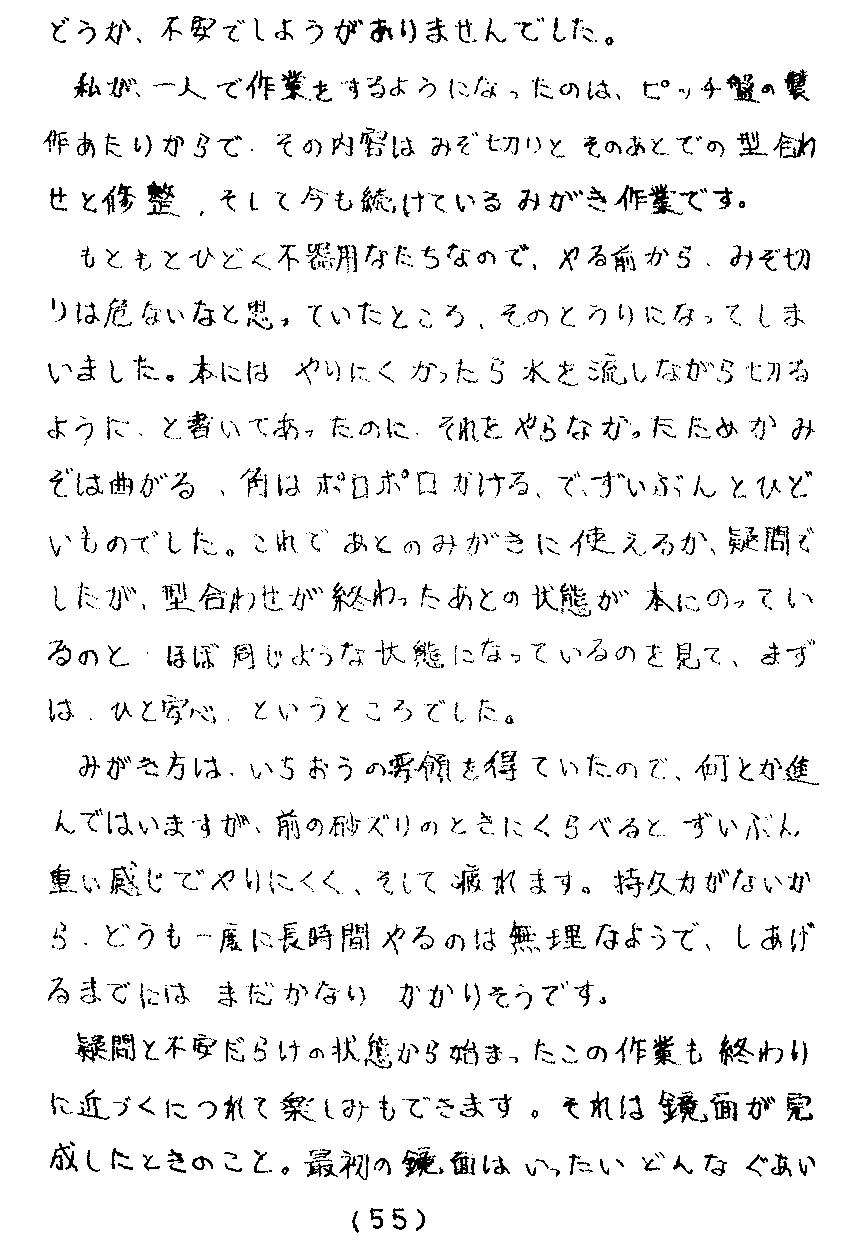 どうか、不安でしようがありませんでした。
私が、一人で作業をするようになったのは、ピッチ盤の製
作あたりからで、その内容はみぞ切りとそのあとでの型合わ
せと修整、そして今も続けているみがき作業です。
もともとひどく不器用なたちなので、やる前から、みぞ切
りは危ないなと思っていたところ、そのとうりになってしま
いました。本にはやりにくかったら水を流しながら切る
ように、と書いてあったのに、それをやらなかったためかみ
ぞは曲がる、角はボロボロかける、で、ずいぶんとひど
いものでした。これであとのみがきに使えるか、疑問で
したが、型合わせが終わったあとの状態が本にのってい
るのと、ほぼ同じような状態になっているのを見て、まず
は、ひと安心、というところでした。
みがき方は、いちおうの要領を得ていたので、何とか進
んではいますが、前の砂ズリのときにくらべるとずいぶん
重い感じでやりにくく、そして疲れます。持久力がないか
ら、どうも一度に長時間やるのは無理なようで、しあげ
るまでにはまだかなりかかりそうです。
疑問と不安だらけの状態から始まったこの作業も終わり
に近づくにつれて楽しみもできます。それは鏡面が完
成したときのこと。最初の鏡面はいったいどんなぐあい
(55)